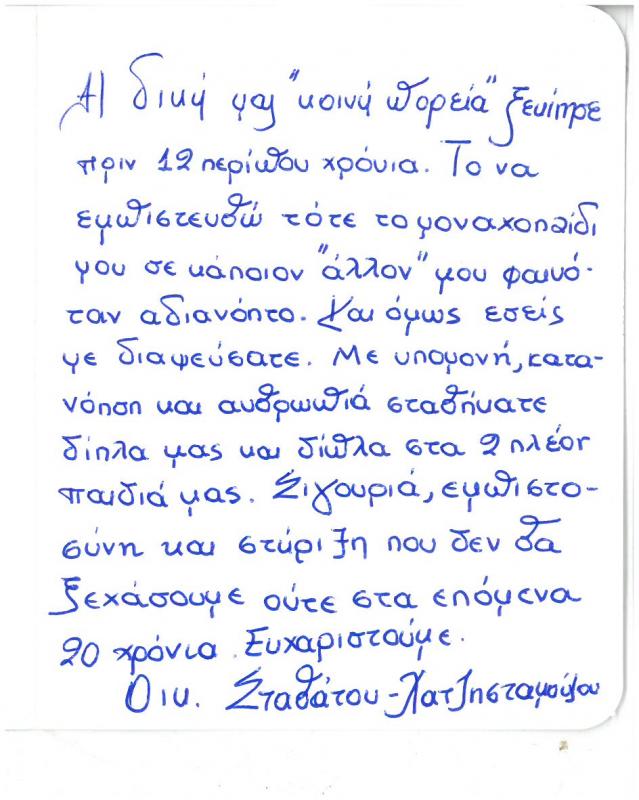 Η δική μας "κοινή πορεία" ξεκίνησε
πριν 12 περίπου χρόνια. Το να
εμπιστευθώ τότε το μοναχοπαίδι
μου σε κάποιον "άλλον" μου φαινό-
ταν αδιανόητο. Και όμως εσείς
με διαψεύσατε. Με υπομονή, κατα-
νόηση και ανθρωπιά σταθήκατε
δίπλα μας και δίπλα στα 2 πλέον
παιδιά μας. Σιγουριά, εμπιστο-
σύνη και στήριξη που δεν θα
ξεχάσουμε ούτε στα επόμενα
20 χρόνια. Ευχαριστούμε.
Οικ. Σταθάτου-Χατζησταμούλου